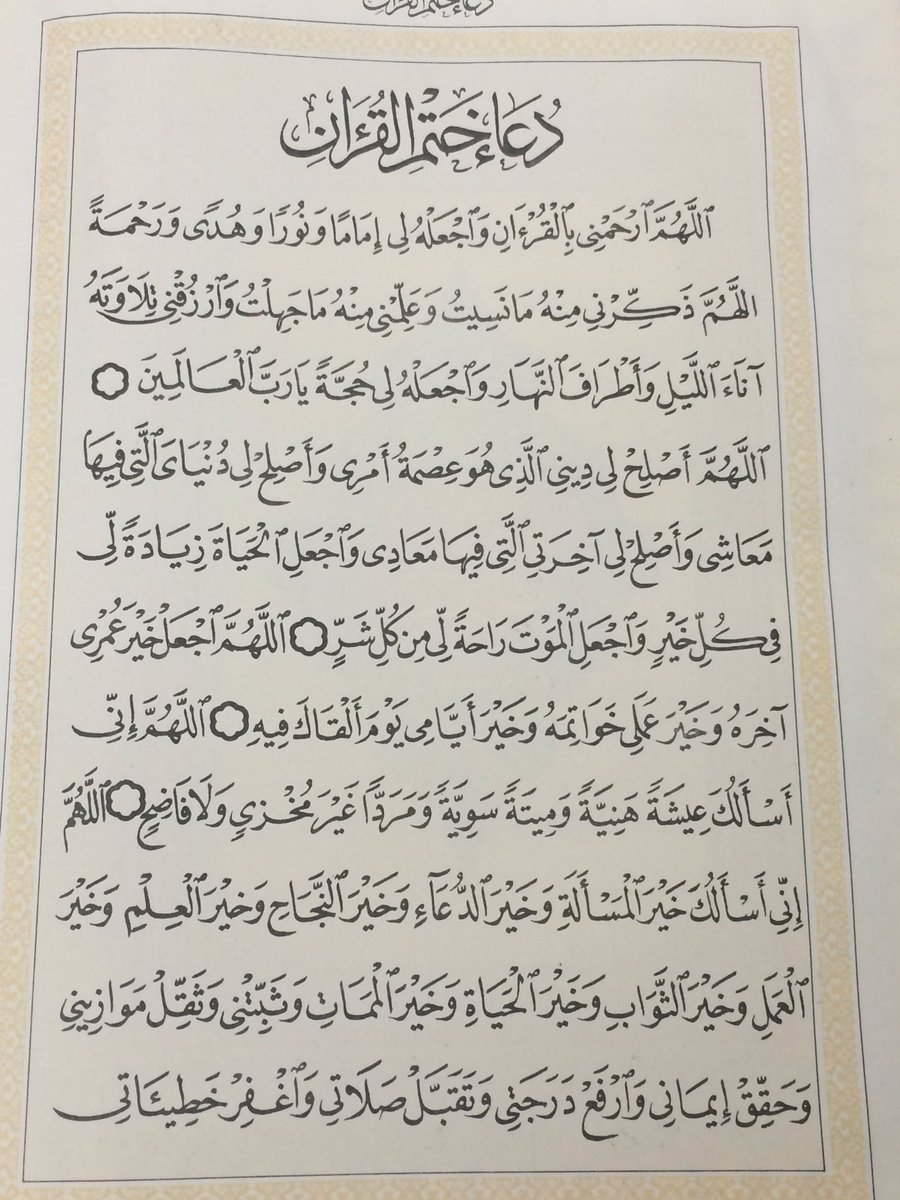 دعاء ختم القرآن
دُعَاءُ خَتْمِ الْقُرْءَانِ
ٱللَّهُمَّ ٱرْحَمْنِى بِٱلْقُرْءَانِ وَٱجْعَلْهُ لِى إِمَامًا وَنُورًا وَهُدًى وَرَحْمَةً
اللَّهُمَّ ذَكِّرْنِى مِنْهُ مَا نَسِيتُ وَعَلِّمْنِى مِنْهُ مَا جَهِلْتُ وَٱرْزُقْنِى تِلَاوَتَهُ
آنَاءَ ٱللَّيْلِ وَأَطْرَافَ ٱلنَّهَارِ وَٱجْعَلْهُ لِى حُجَّةً يَا رَبَّ ٱلْعَالَمِينَ
ٱللَّهُمَّ أَصْلِحْ لِى دِينِى ٱلَّذِى هُوَ عِصْمَةُ أَمْرِى وَأَصْلِحْ لِى دُنْيَاىَ ٱلَّتِى فِيهَا
مَعَاشِى وَأَصْلِحْ لِى آخِرَتِى ٱلَّتِى فِيهَا مَعَادِى وَٱجْعَلِ ٱلْحَيَاةَ زِيَادَةً لِّى
فِى كُلِّ خَيْرٍ وَٱجْعَلِ ٱلْمَوْتَ رَاحَةً لِّى مِن كُلِّ شَرٍّ ٱللَّهُمَّ ٱجْعَلْ خَيْرَ عُمْرِى
آخِرَهُ وَخَيْرَ عَمَلِى خَوَاتِمَهُ وَخَيْرَ أَيَّامِى يَوْمَ أَلْقَاكَ فِيهِ ٱللَّهُمَّ إِنِّى
أَسْأَلُكَ عِيشَةً هَنِيَّةً وَمِيتَةً سَوِيَّةً وَمَرَدًّا غَيْرَ مُخْزِىٍ وَلَا فَاضِحٍ ٱللَّهُمَّ
إِنِّى أَسْأَلُكَ خَيْرَ ٱلْمَسْأَلَةِ وَخَيْرَ ٱلدُّعَآءِ وَخَيْرَ ٱلنَّجَاحِ وَخَيْرَ ٱلْعِلْمِ وَخَيْرَ
ٱلْعَمَلِ وَخَيْرَ ٱلثَّوَابِ وَخَيْرَ ٱلْحَيَاةِ وَخَيْرَ ٱلْمَمَاتِ وَثَبِّتْنِى وَثَقِّلْ مَوَازِينِى
وَحَقِّقْ إِيمَانِى وَٱرْفَعْ دَرَجَتِى وَتَقَبَّلْ صَلَاتِى وَٱغْفِرْ خَطِيئَاتِى